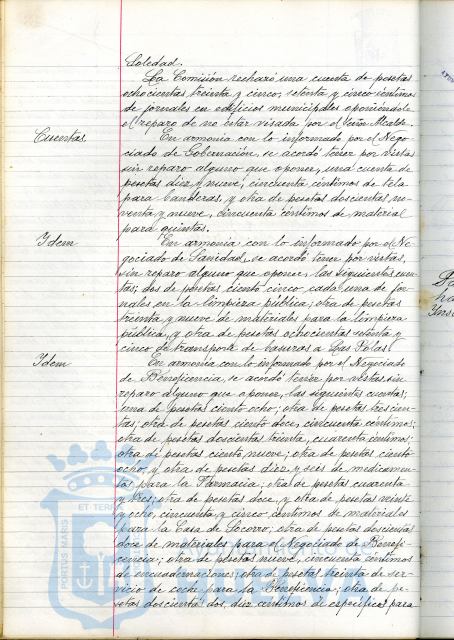 Soledad.
La Comisión rechazó una cuenta de pesetas
ochocientas treinta y cinco, setenta y cinco céntimos
de jornales en edificios municipales oponiéndole
el reparo de no estar visada por el Señor Alcalde.
Cuentas
En armonía con lo informado por el Nego-
ciado de Gobernación, se acordó tener por vistas
sin reparo alguno que oponer, una cuenta de
pesetas diez y nueve, cincuenta céntimos de tela
para banderas, y otra de pesetas doscientas no-
venta y nueve, cincuenta céntimos de material
para quintas.
Idem
En armonía con lo informado por el Ne-
gociado de Sanidad, se acordó tener por vistas,
sin reparo alguno que oponer, las siguientes cuen-
tas; dos de pesetas ciento cinco, cada una de jor-
nales en la limpieza pública; otra de pesetas
treinta y nueve de materiales para la limpieza
pública, y otra de pesetas ochocientas setenta y
cinco de transporte de basuras a Las Salas.
Idem
En armonía con lo informado por el Negociado
de Beneficencia, se acordó tener por vistas sin
reparo alguno que oponer, las siguientes cuentas;
una de pesetas ciento ocho; otra de pesetas trescien-
tas; otra de pesetas ciento doce, cincuenta céntimos;
otra de pesetas doscientas treinta, cuarenta céntimos;
otra de pesetas ciento nueve; otra de pesetas ciento
ocho, y otra de pesetas diez y seis de medicamen-
tos para la Farmacia; otra de pesetas cuarenta
y tres; otra de pesetas doce, y otra de pesetas veinte
y ocho, cincuenta y cinco céntimos de materiales
para la Casa de Socorro; otra de pesetas doscientas
doce de materiales para el Negociado de Benefi-
cencia; otra de pesetas nueve, cincuenta céntimos
de encuadernaciones; otra de pesetas treinta de ser-
vicio de coche para la Beneficencia; otra de pe-
setas doscientas dos, diez céntimos de específicos para
PORTUS MARIS
ET TERRA
Ayuntamiento de